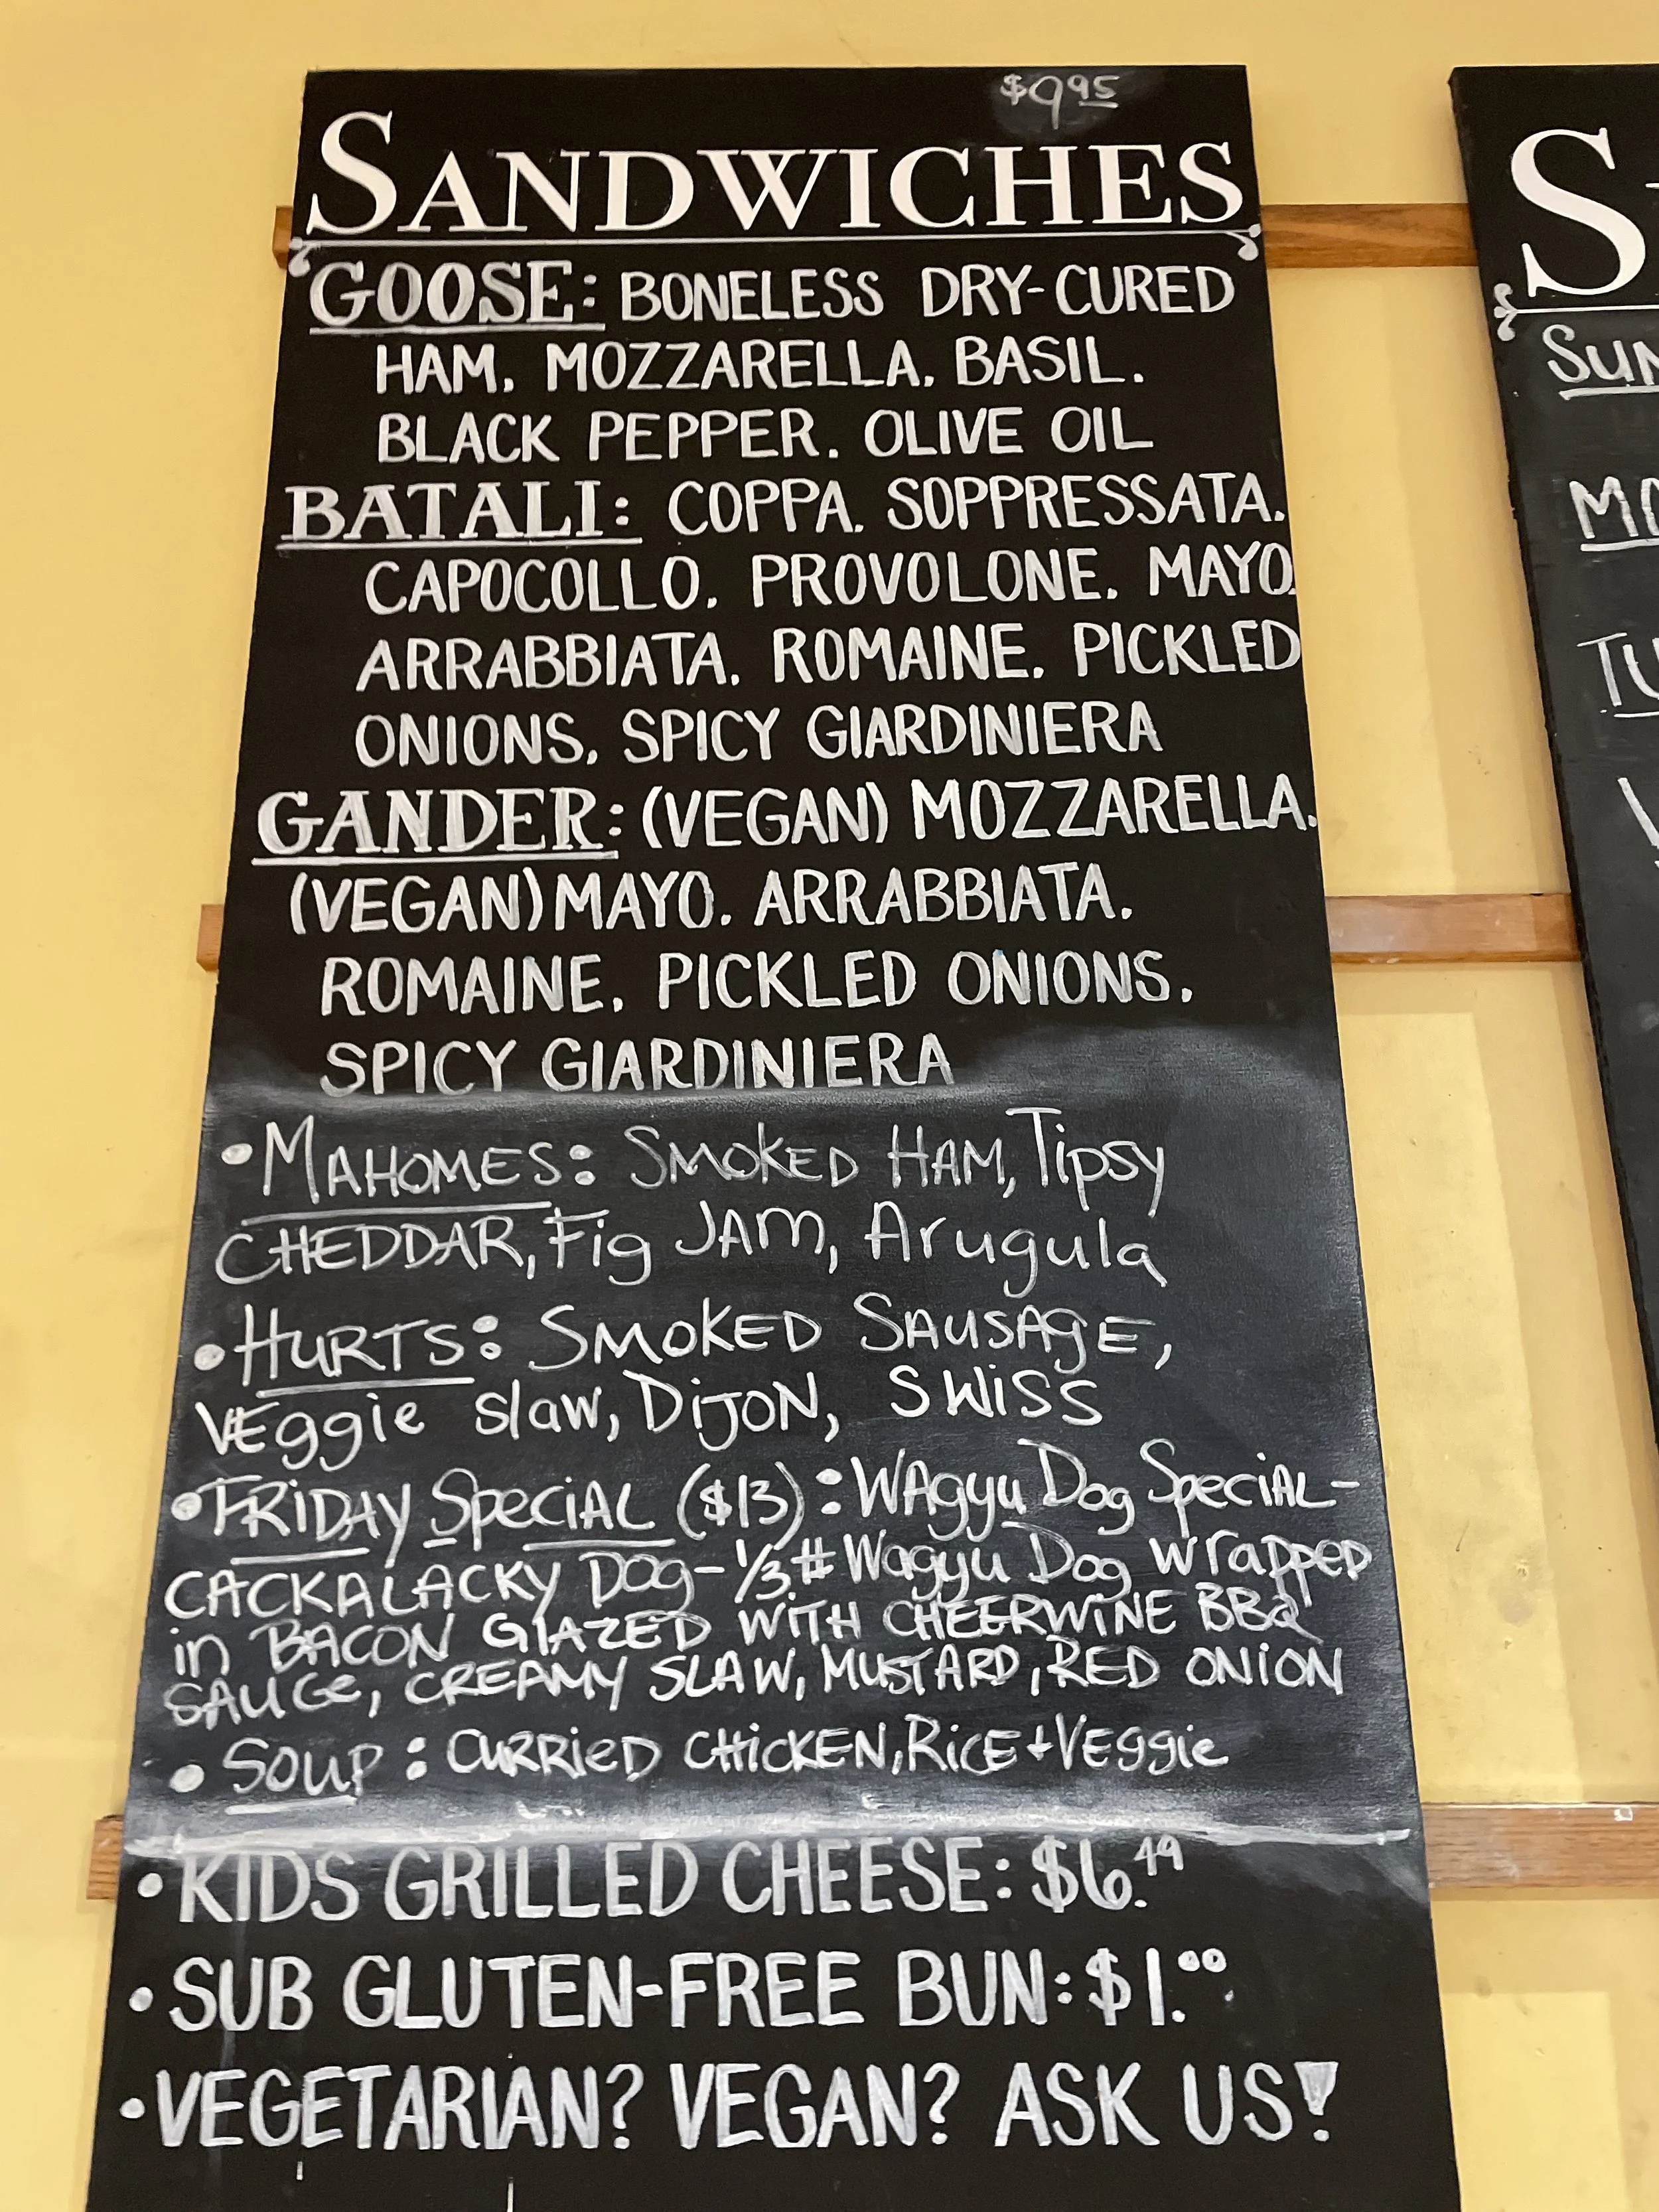 $9.95
SANDWICHES
GOOSE: BONELESS DRY-CURED
HAM. MOZZARELLA. BASIL.
BLACK PEPPER. OLIVE OIL
BATALI: COPPA. SOPPRESSATA.
CAPOCOLLO. PROVOLONE. MAYO.
ARRABBIATA. ROMAINE. PICKLED
ONIONS. SPICY GIARDINIERA
GANDER: (VEGAN) MOZZARELLA.
(VEGAN) MAYO. ARRABBIATA.
ROMAINE. PICKLED ONIONS.
SPICY GIARDINIERA
• MAHOMES: SMOKED HAM, Tipsy
CHEDDAR, Fig JAM, Arugula
• HURTS: SMOKED SAUSAgE,
VEggie slaw, DijON, SWiSS
• FRiDAY SpeciAL ($13): WAgyu Dog SpeciAL-
CACKALACKY DOg- 1/3 # Wagyu Dog wrapped
in BACON GLAZED WiTH CHEERWINE BBQ
SAUCe, CREAMY SLAW, MUSTARD, RED ONiON
• SOUP: CURRiED CHiCKEN, RiCE + VEggie
• KIDS GRILLED CHEESE: $6.49
• SUB GLUTEN-FREE BUN: $1.00
• VEGETARIAN? VEGAN? ASK US!
S
SUN
MO
TU